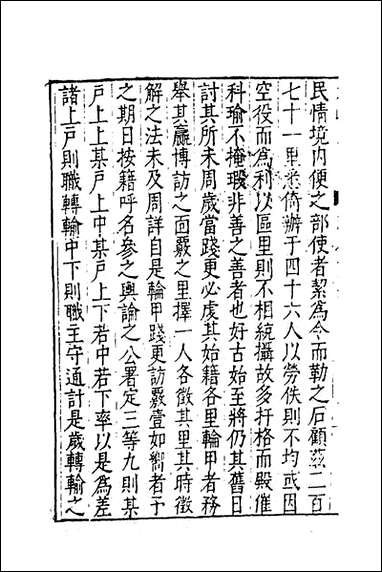 民情境内便之部使者絜為令而勒之石顧茲二百
七十一里悉倚辦于四十六人以勞佚則不均或因
空役而為利以區里則不相統攝故多扞格而殿催
科瑜不掩瑕非善之善者也好古始至將仍其舊日
討其所未周歲當踐更必虔其始籍各里輪甲者務
舉其羸博訪之面覈之里擇一人各徵其里其時徵
解之法未及周詳自是輪甲踐更訪覈壹如嚮者于
之期日按籍呼名參之輿論之公署定三等九則某
戶上上某戶上中某戶上下若中若下率以是為差
諸上戶則職轉輸中下則職主守通計是歲轉輸之